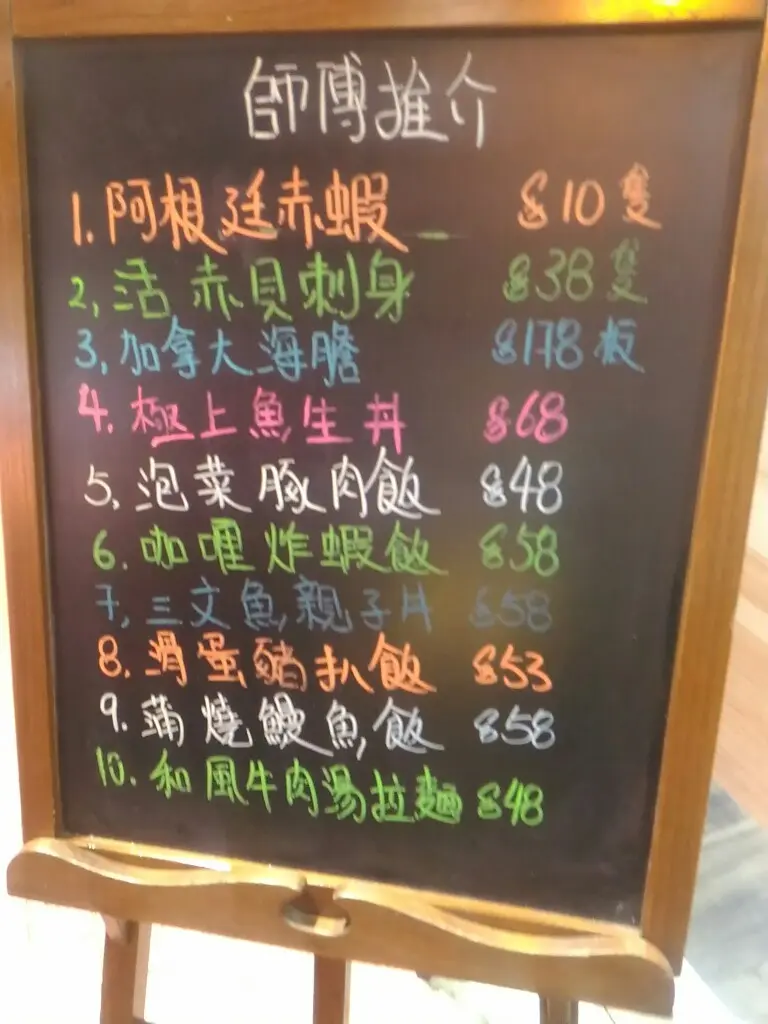 師傅推介
1. 阿根廷赤蝦 $10 隻
2, 活赤貝刺身 $38 隻
3, 加拿大海膽 $178 板
4. 極上魚生丼 $68
5. 泡菜豚肉飯 $48
6. 咖喱炸蝦飯 $58
7, 三文魚親子丼 $58
8. 滑蛋豬扒飯 $53
9. 蒲燒鰻魚飯 $58
10. 和風牛肉湯拉麵 $48